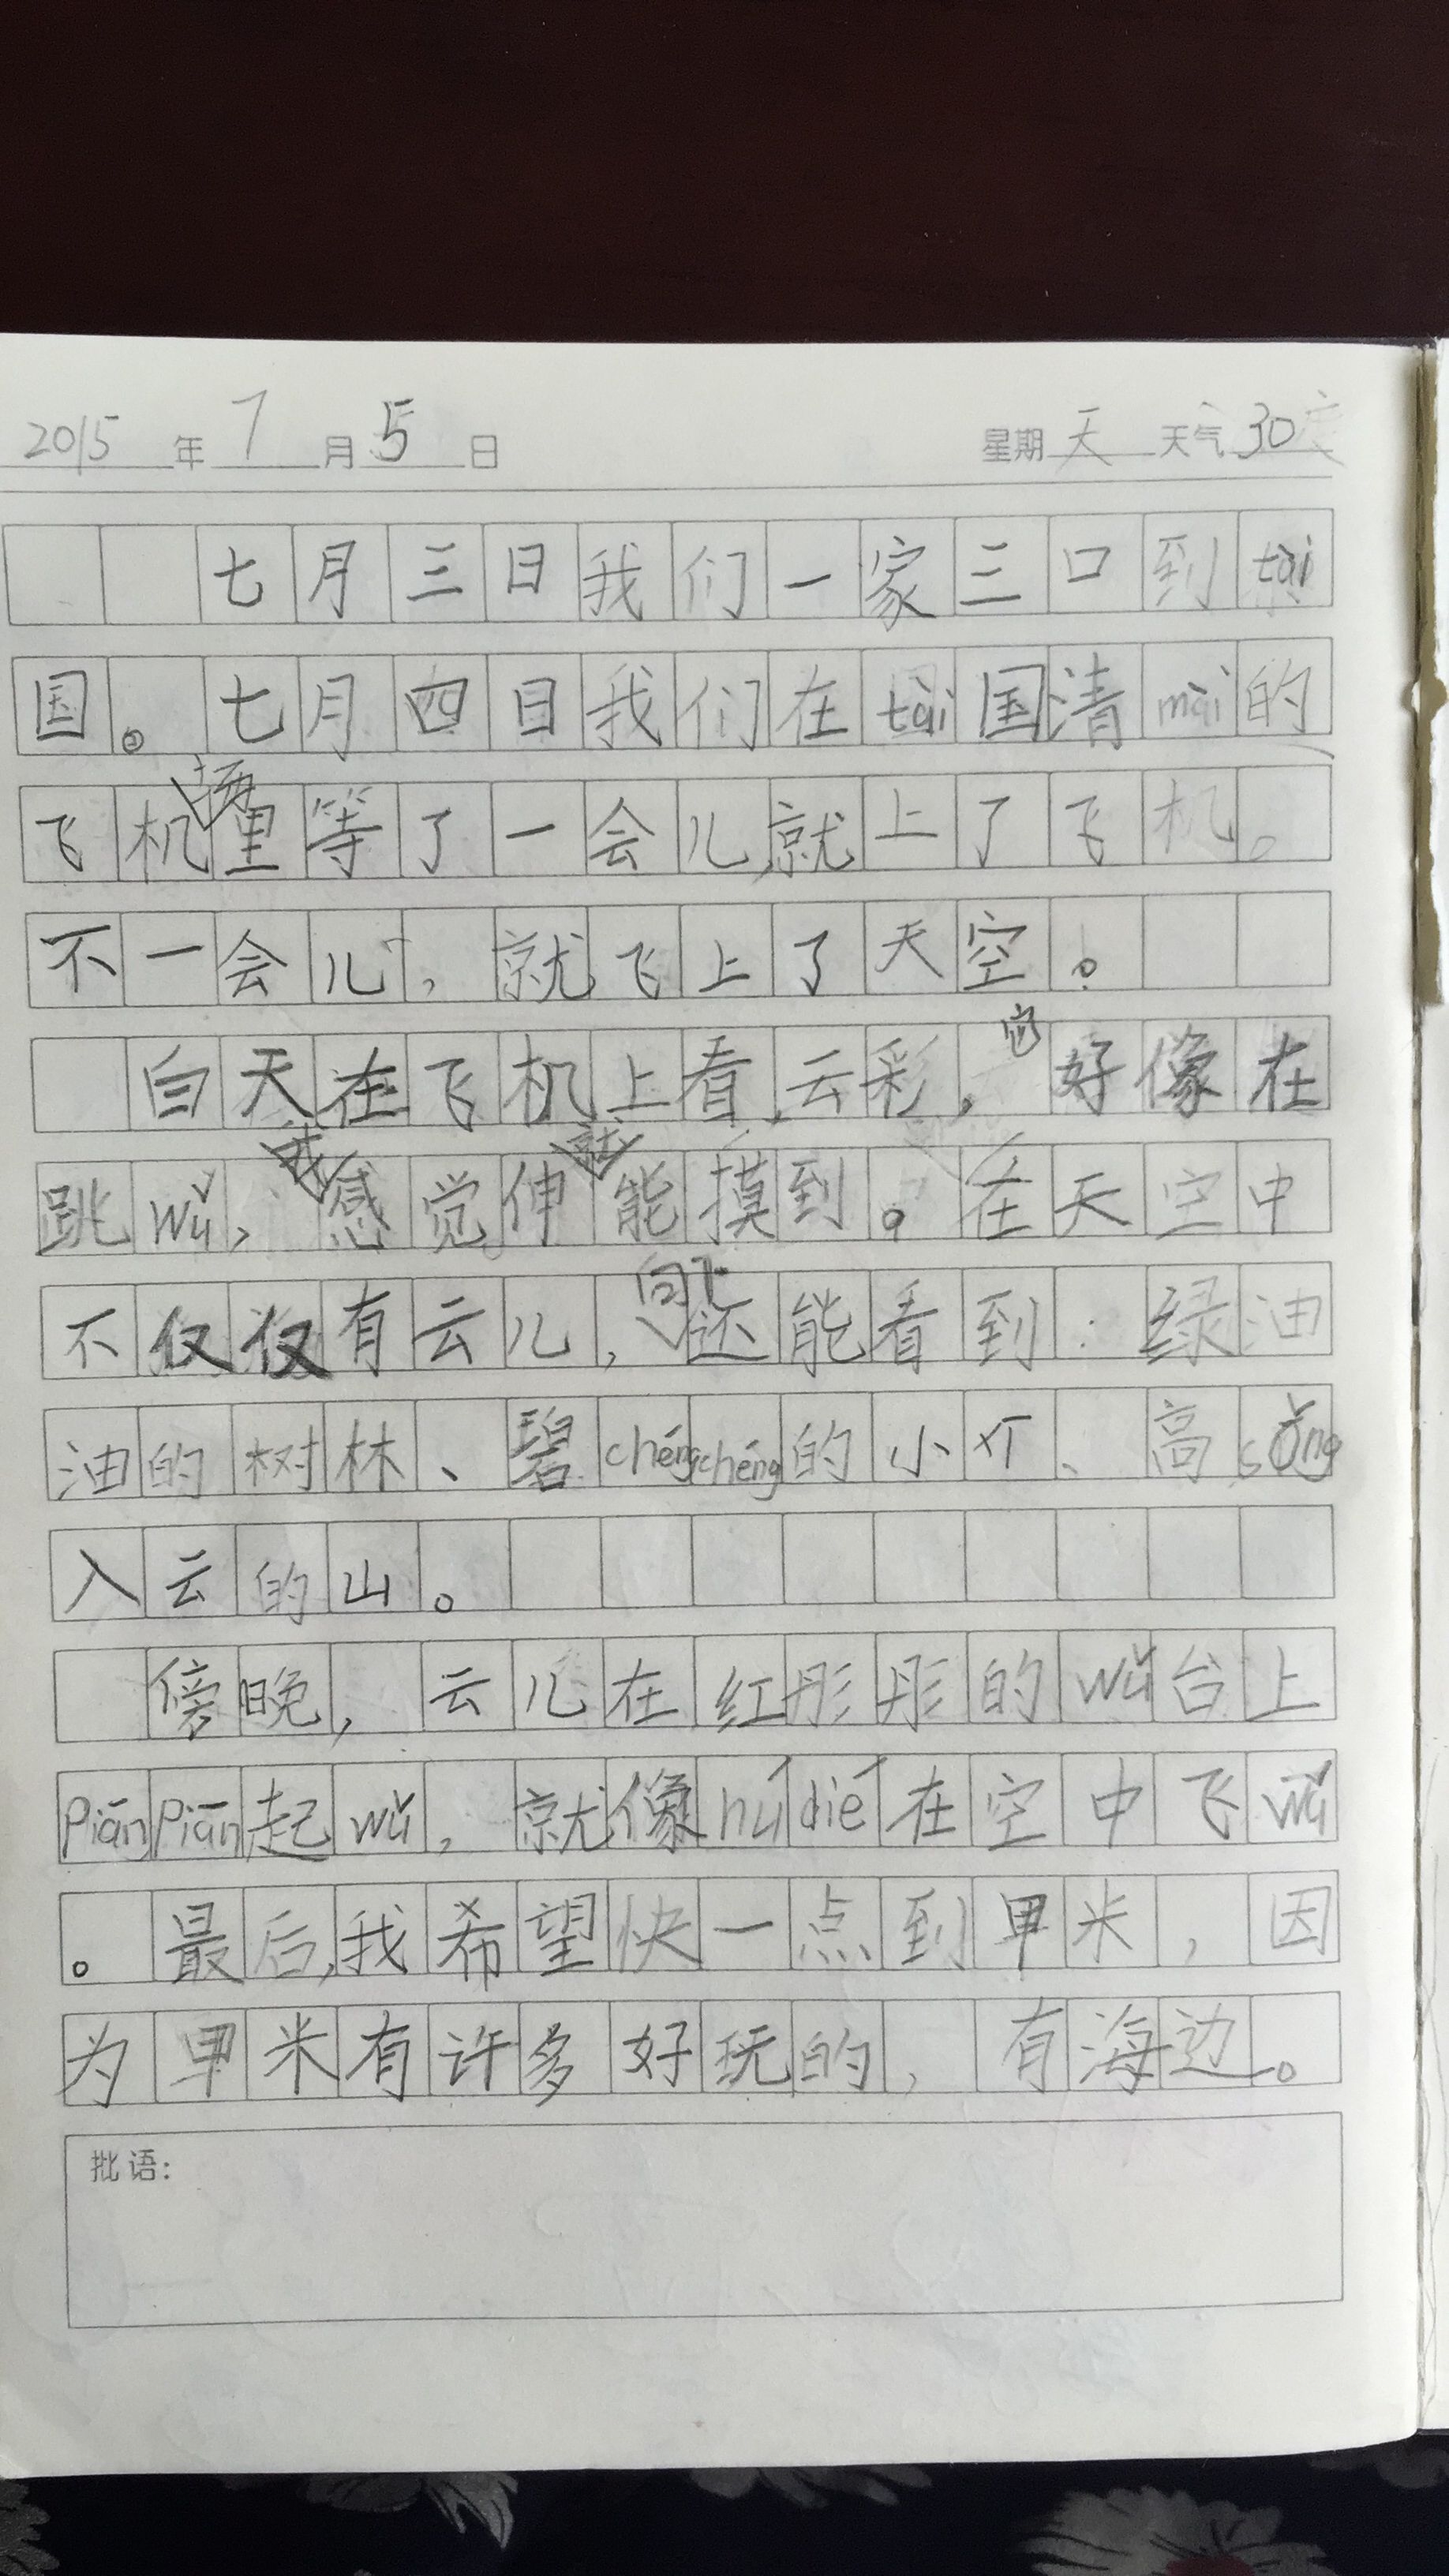 2015年7月5日 星期天 天气30度
七月三日我们一家三口到tài
国。七月四日我们在tài国清mài的
飞机场里等了一会儿就上了飞机。
不一会儿,就飞上了天空。
白天在飞机上看云彩,它好像在
跳wǔ,我感觉伸就能摸到。在天空中
不仅仅有云儿,向下还能看到:绿油
油的树林、碧chéngchéng的小河、高sǒng
入云的山。
傍晚,云儿在红彤彤的wǔ台上
piānpiān起wǔ,就像húdié在空中飞wǔ
。最后,我希望快一点到甲米,因
为甲米有许多好玩的,有海边。
批语: